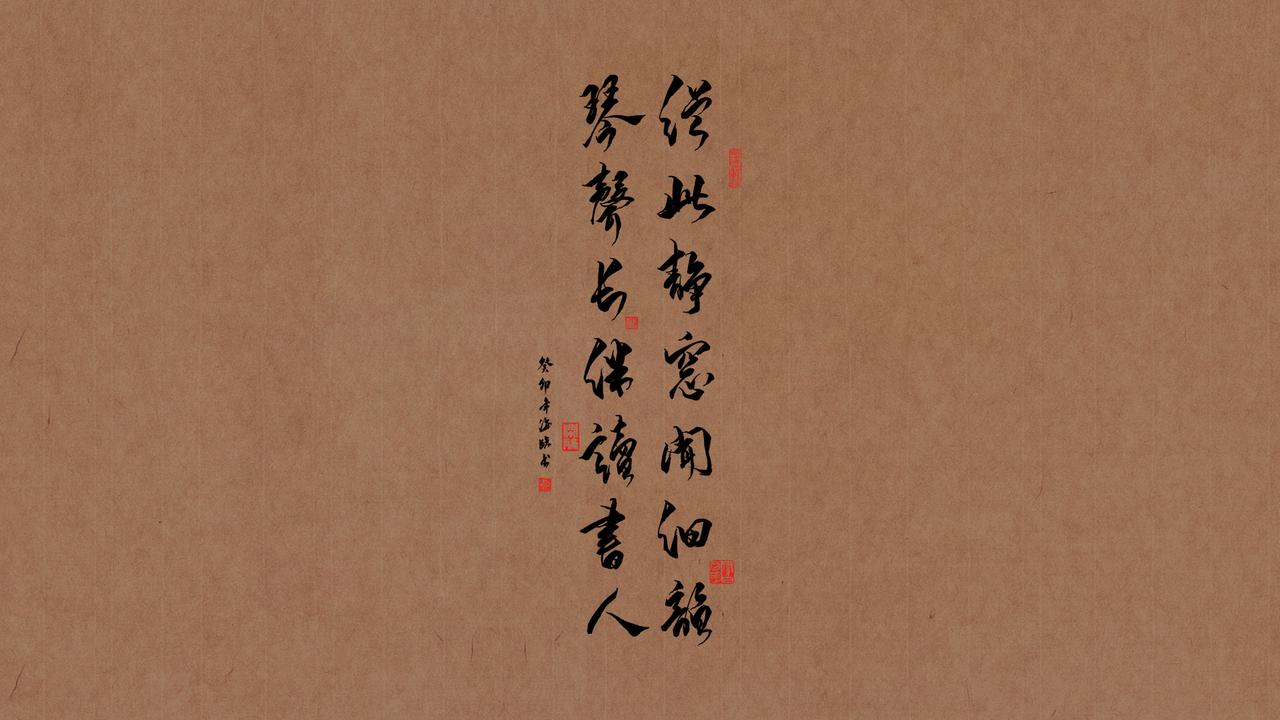 從此静窓聞細韻
琴聲长伴讀書人
癸卯年海臨书